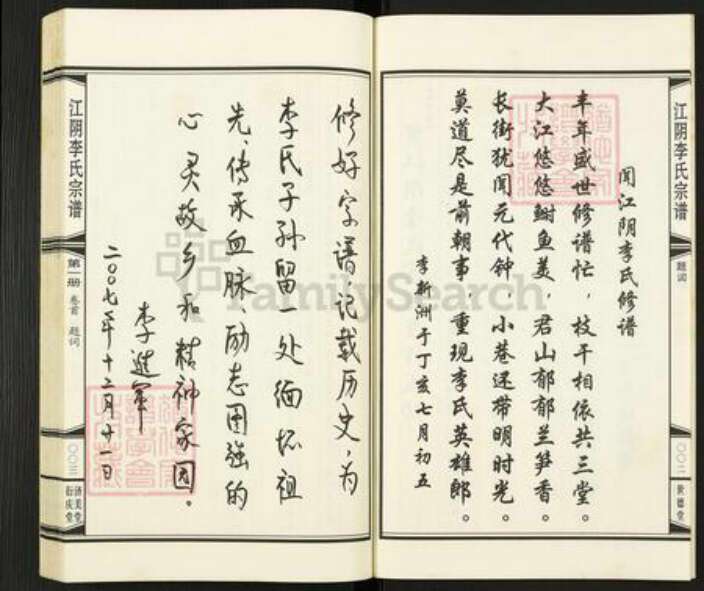 江阴李氏宗谱
题词
〇〇二
世德堂
闻江阴李氏修谱
丰年盛世修谱忙，枝干相依共三堂。
大江悠悠鲥鱼美，君山郁郁兰笋香。
长街犹闻元代钟，小巷还带明时光。
莫道尽是前朝事，重现李氏英雄郎。
李新洲于丁亥七月初五
修好字谱记载历史，为
李氏子孙留一处缅怀祖
先、传承血脉、励志图强的
心灵故乡和精神家园。
李进军
二〇〇七年十二月廿一日
江阴李氏宗谱
第一册 卷首 题词
〇〇三
济美堂
衍庆堂
FamilySearch